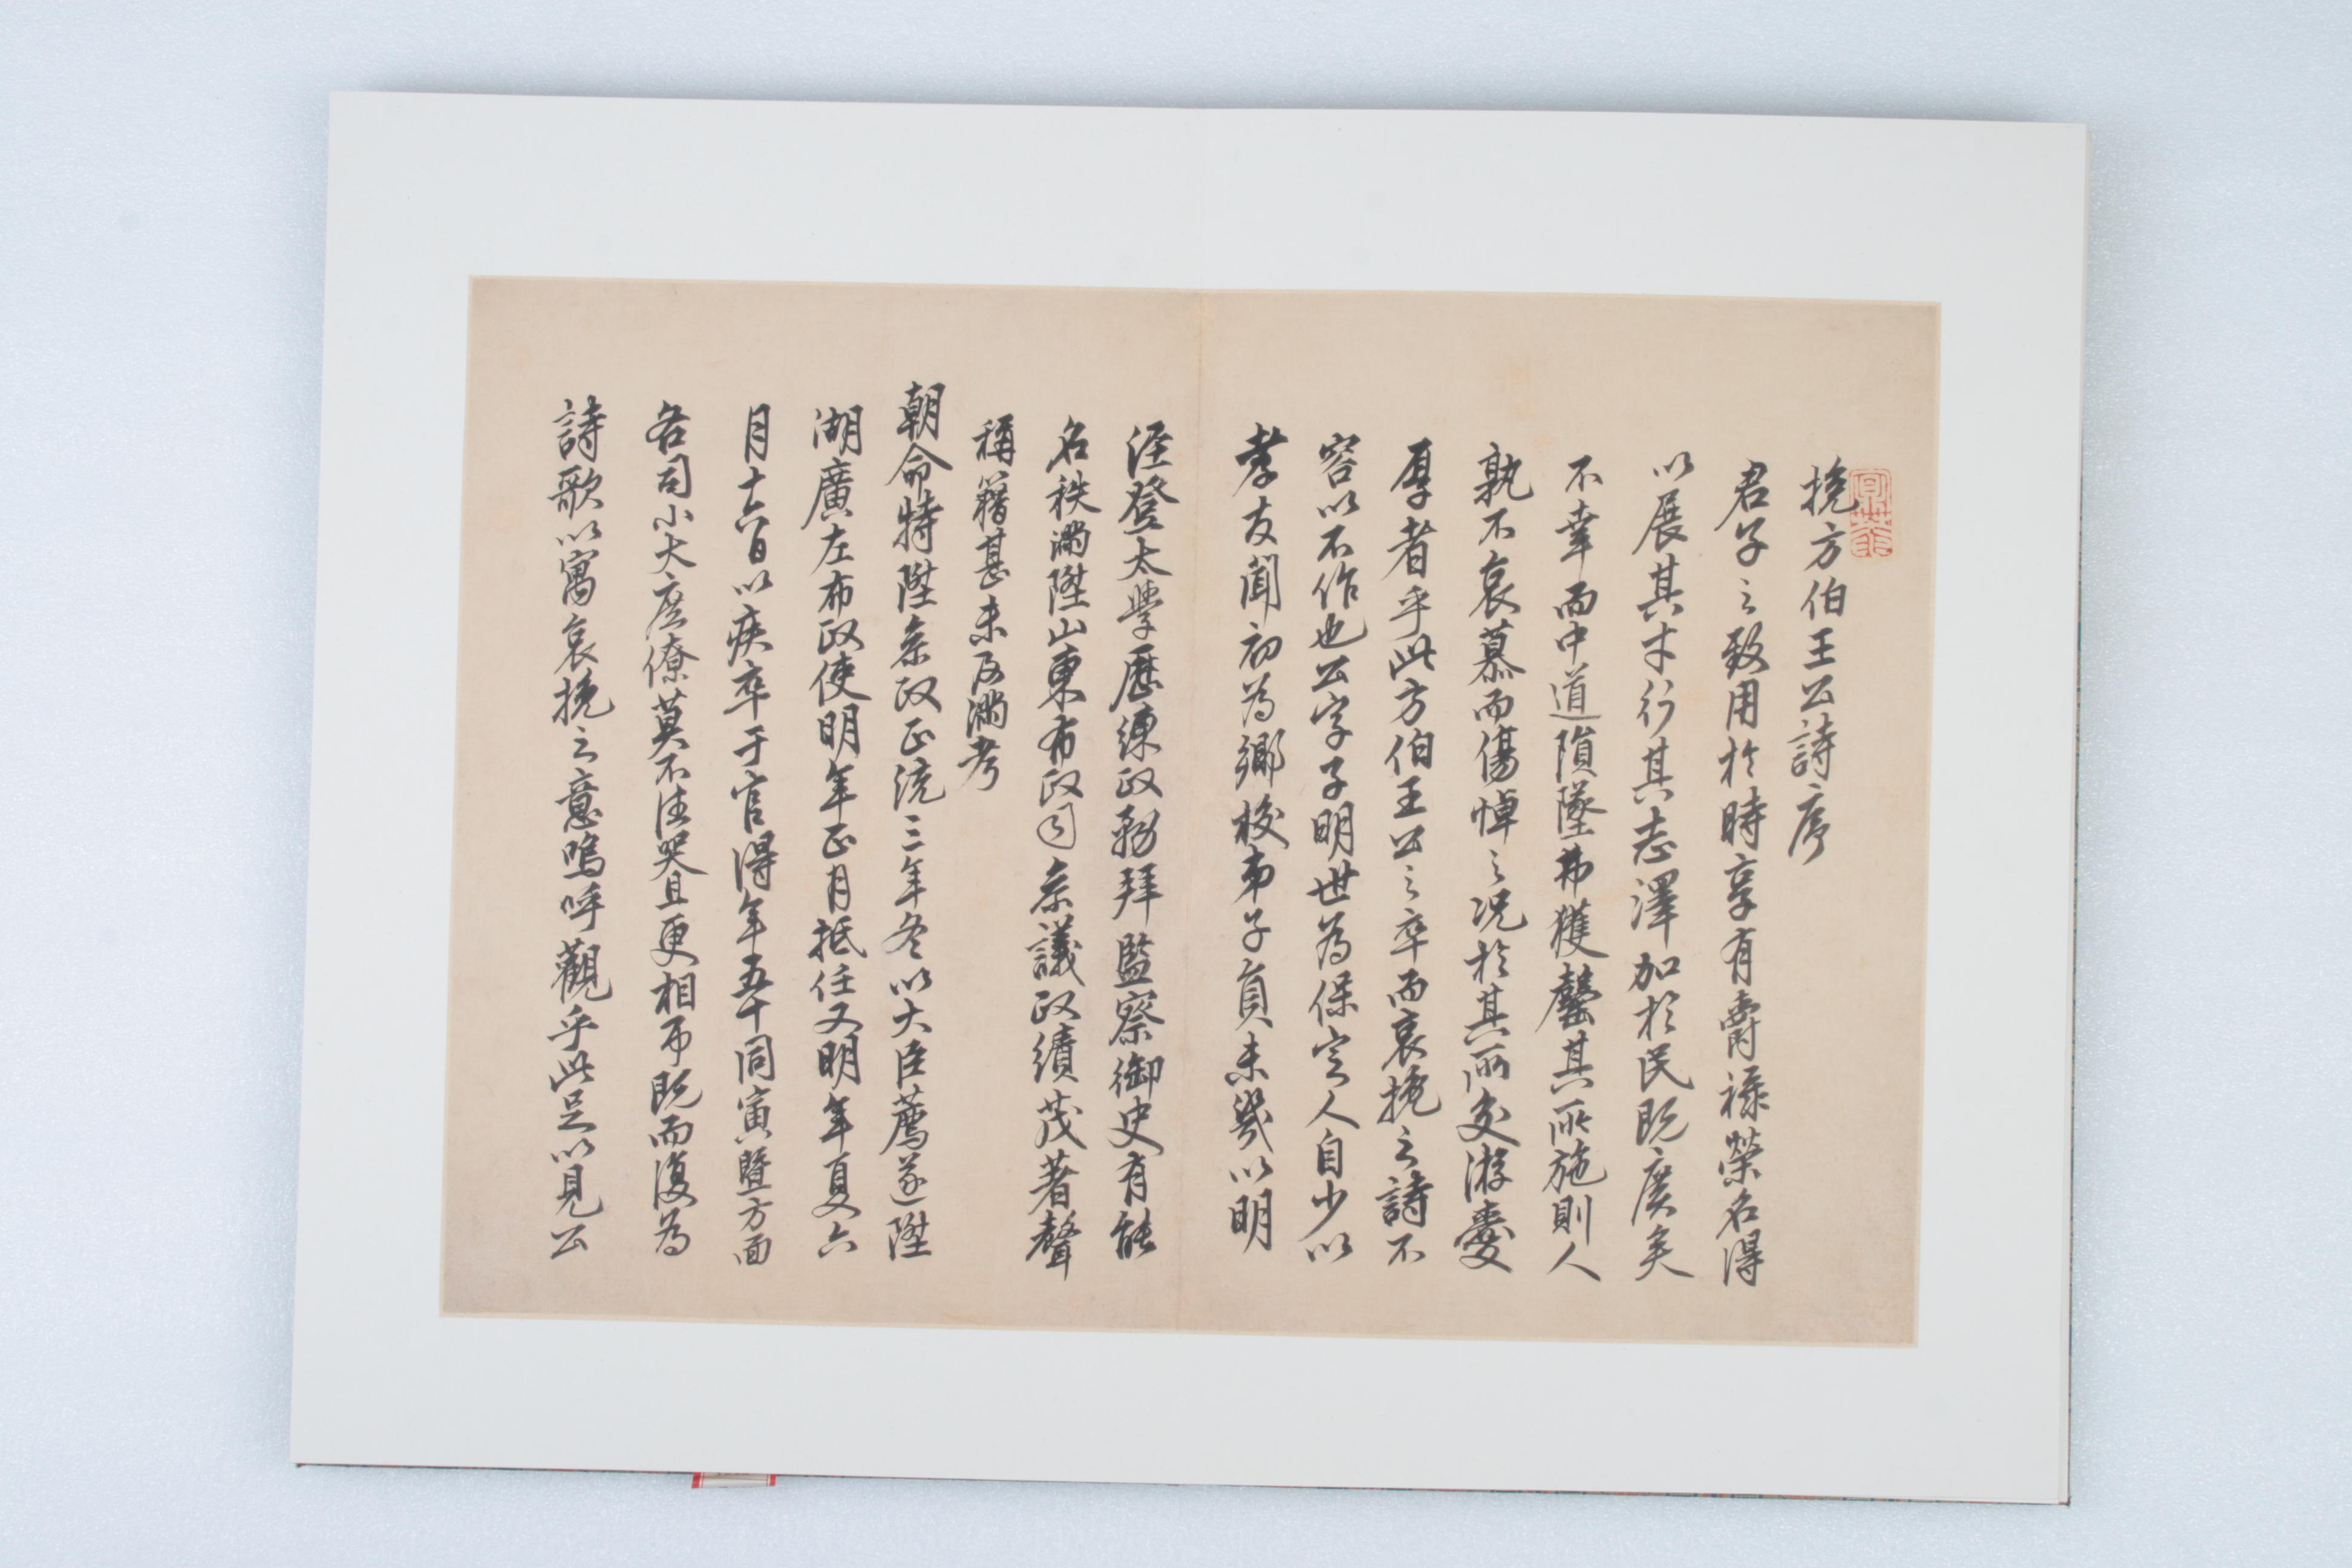 挽方伯王公詩序
君子之致用於時享有爵祿榮名得
以展其才行其志澤加於民既廣矣
不幸而中道隕墜弗獲罄其所施則人
孰不哀慕而傷悼之况於其所交游憂
厚者乎此方伯王公之卒而哀挽之詩不
容以不作也公字子明世為保定人自少以
孝友聞初為鄉校弟子員未幾以明
經登太學歷練政務拜監察御史有能
名秩滿陞山東布政司叅議政績茂著聲
稱籍甚未及滿考
朝命特陞叅政正統三年冬以大臣薦遂陞
湖廣左布政使明年正月抵任又明年夏六
月十六日以疾卒于官得年五十同寅暨方面
各司小大庶僚莫不往哭且更相弔既而復為
詩歌以寓哀挽之意嗚呼觀乎此足以見公